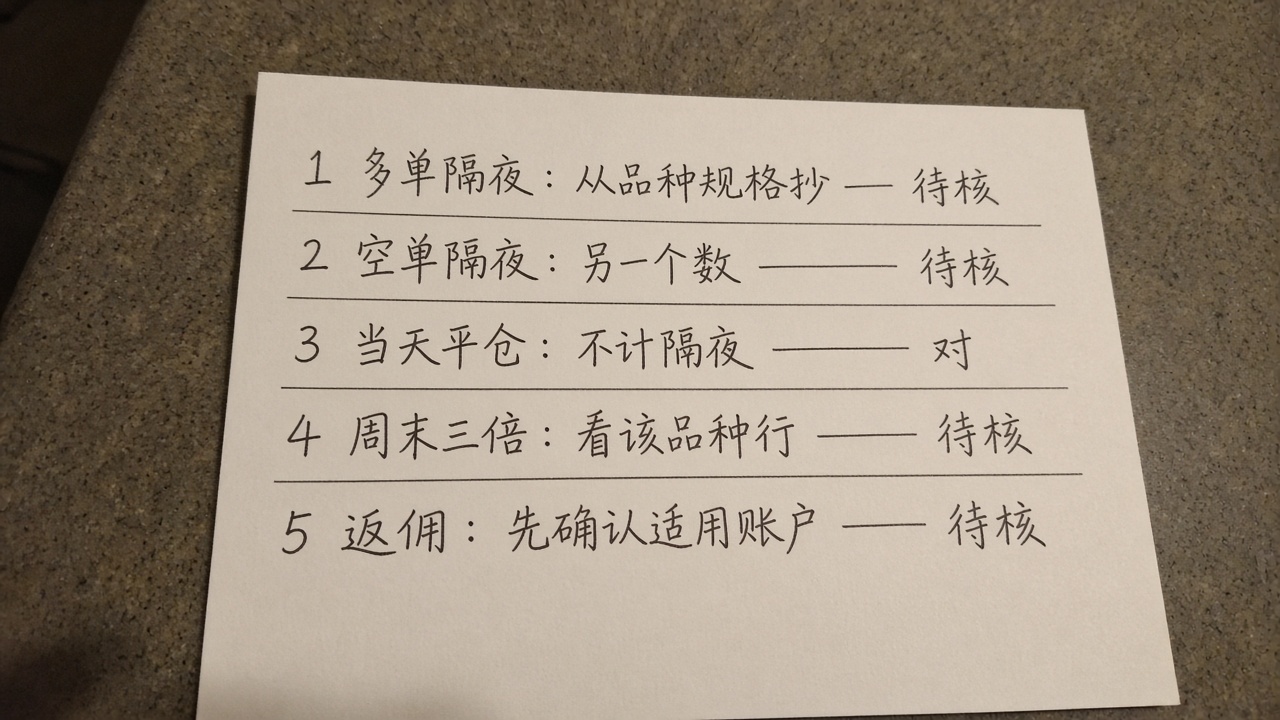 1 多单隔夜：从品种规格抄 — 待核
2 空单隔夜：另一个数 —— 待核
3 当天平仓：不计隔夜 —— 对
4 周末三倍：看该品种行 —— 待核
5 返佣：先确认适用账户 —— 待核